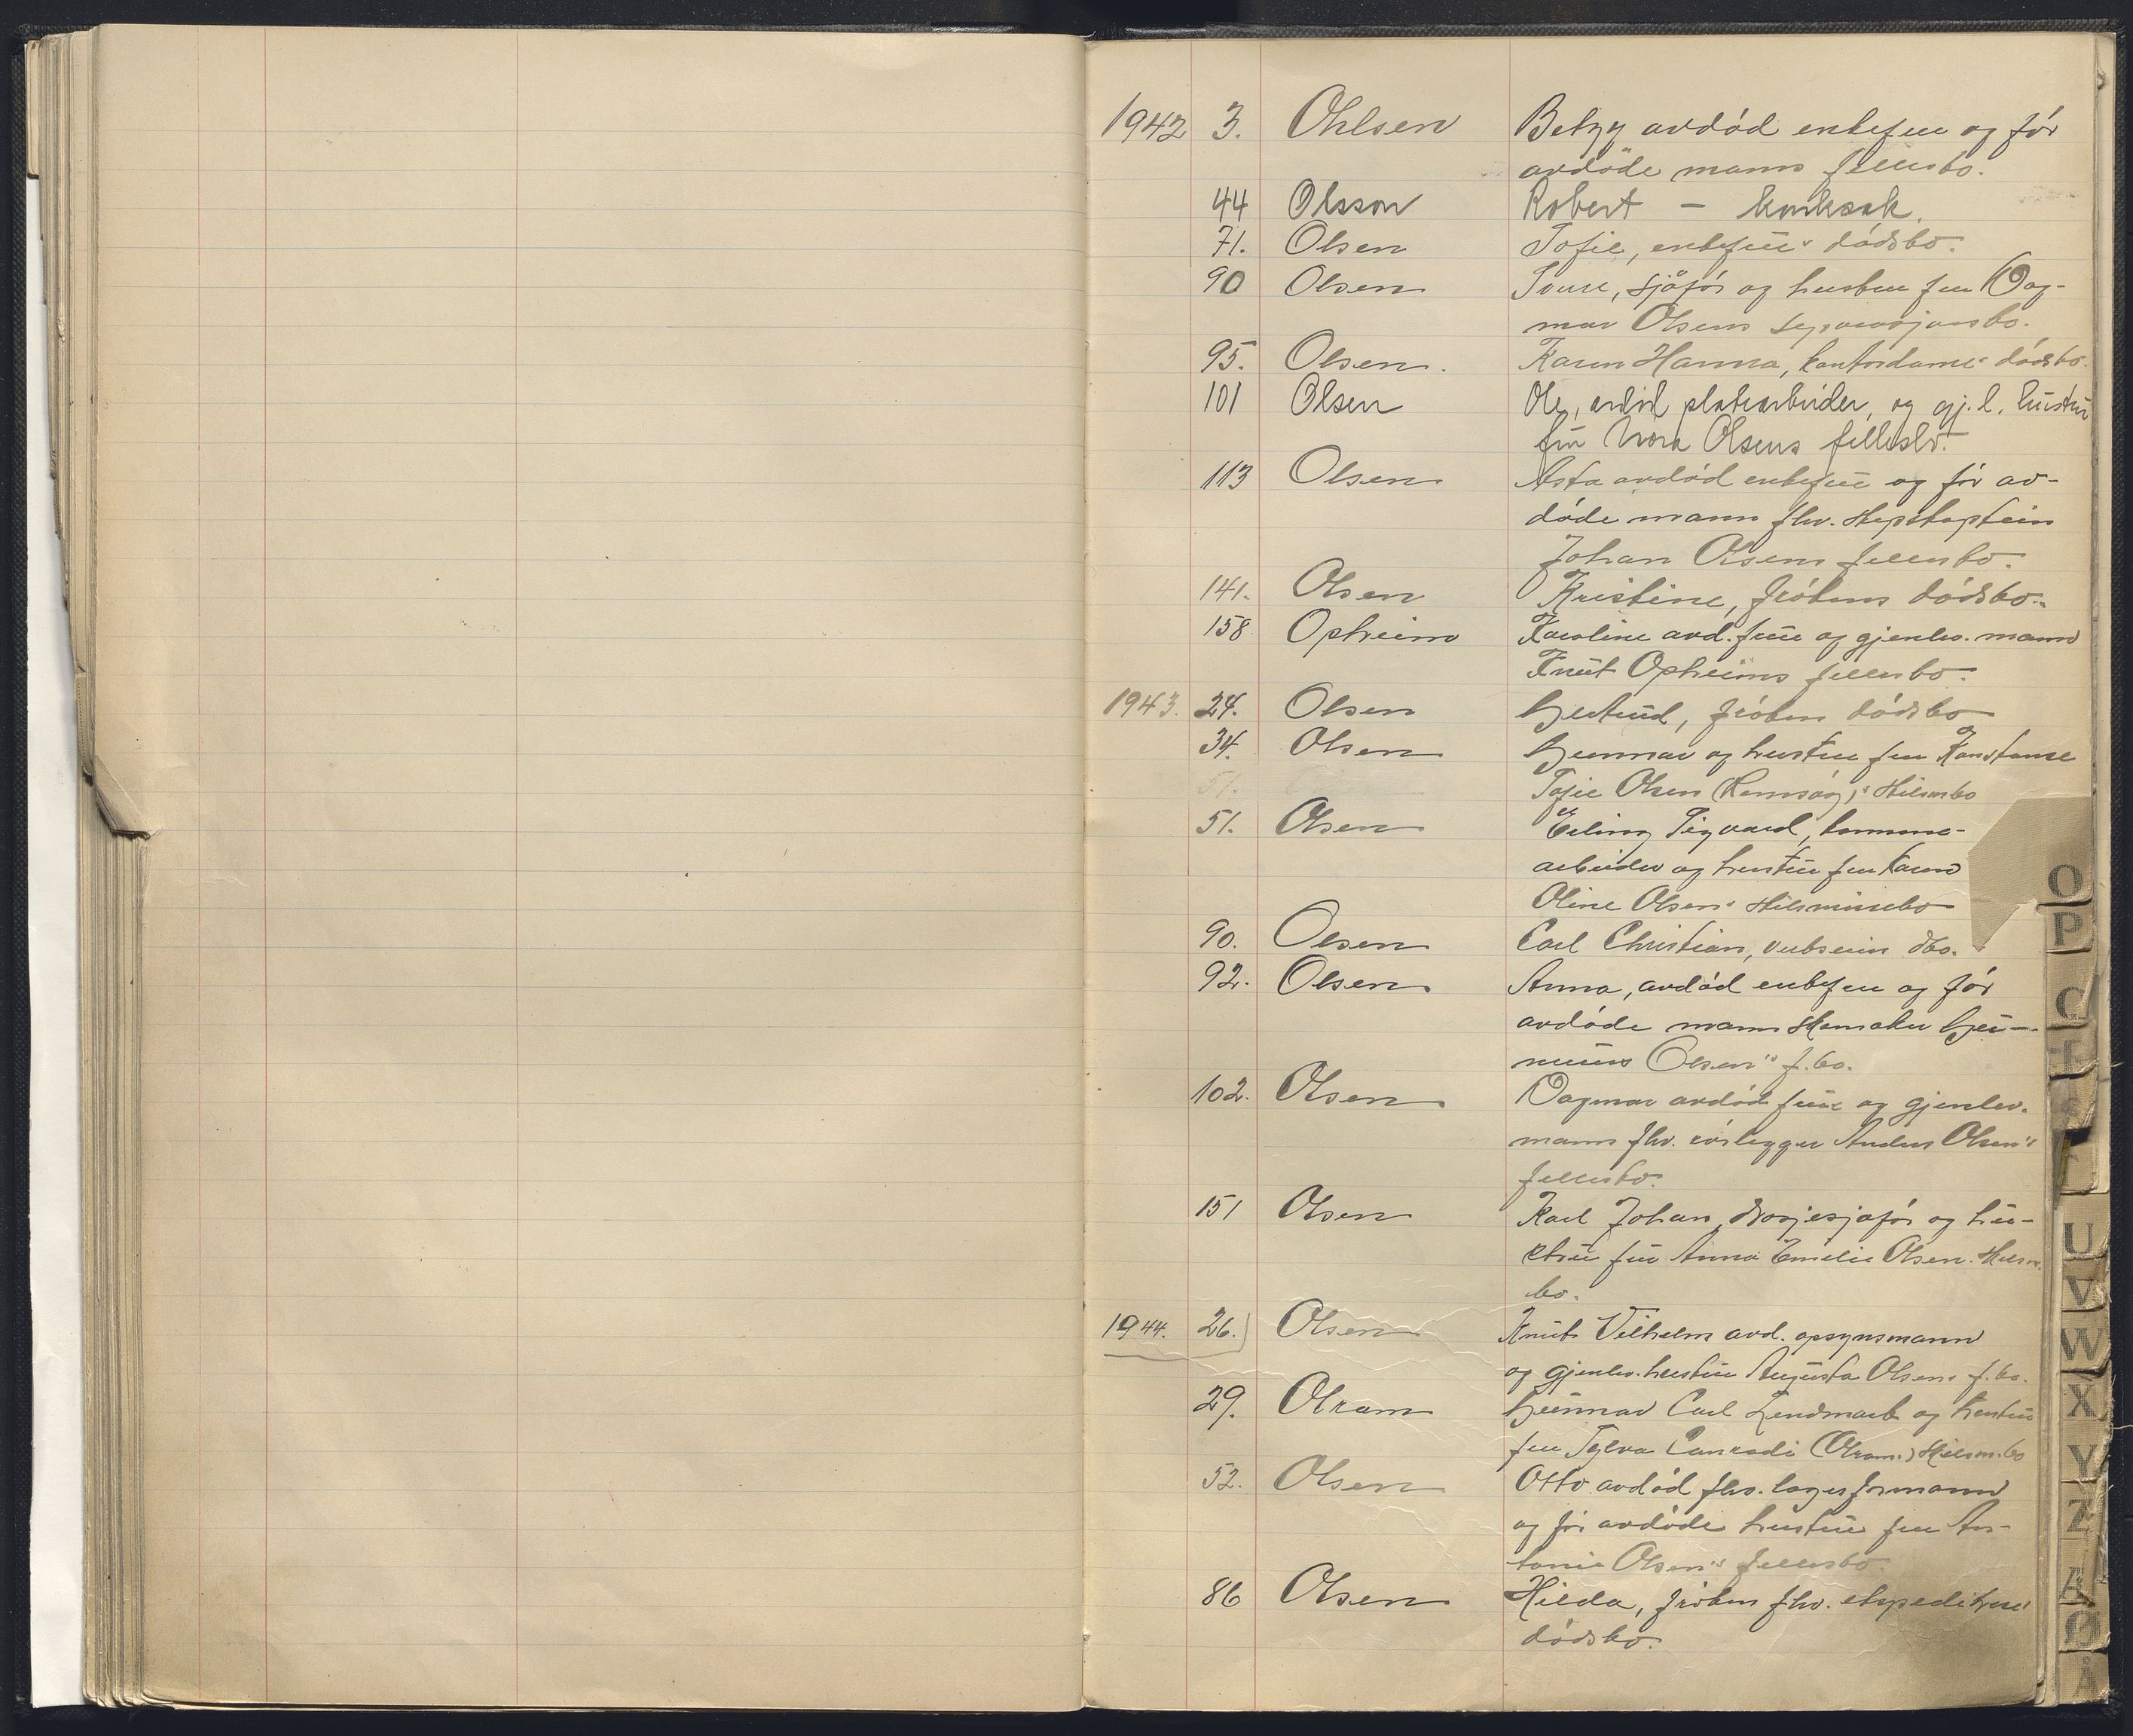 1942 3. Ohlsen Betzy avdød enkefru og før
avdøde manns fellesbo.
44 Olsson Robert - konksak.
71. Olsen Sofie, enkefru's dødsbo.
90 Olsen Sverre, sjåfør og hustru fru Dag-
mar Olsens separasjonsbo.
95. Olsen. Karen Hanna, kontordame's dødsbo.
101 Olsen Ole, avdød platearbeider, og gj.l. hustru
fru Nora Olsens fellesbo.
113 Olsen Asta avdød enkefrue og før av-
døde mann fhv. skipskaptein
Johan Olsens fellesbo.
141. Olsen Kristine, frøkens dødsbo.
158 Opheim Karoline avd. frue og gjenlev. mann
Knut Opheims fellesbo.
1943. 24. Olsen Gertrud, frøkens dødsbo
34. Olsen Gunnar og hustru fru Konstanse
Sofie Olsen skilsmbo
51.
51. Olsen Erling Sigvard, kommune-
arbeider og hustru fru Karen
Oline Olsen's skilsmissebo
90. Olsen Carl Christian, dbo.
92. Olsen Anna, avdød enkefru og før
avdøde mann skomaker Gu-
Olsen's f.bo.
102. Olsen Dagmar avdød frue og gjenlev.
mann fhv. rørlegger Anders Olsen's
fellesbo.
151 Olsen Karl Johan, drosjesjåfør og hu-
stru fru Anna Emilie Olsen. skilsm.
bo.
1944. 26. Olsen Knut Vilhelm avd. opsynsmann
og gjenlev. hustru Augusta Olsens f.bo.
29. Olram Gunnar Carl Lendmark og hustru
fru Sylva Conradi (Olram) skilsm.bo
52. Olsen Otto avdød fhv. lagerformann
og før avdøde hustru fru An-
tonie Olsen's fellesbo.
86 Olsen Hilda, frøken fhv. ekspeditrise's
dødsbo.
O
P
U
V
W
X
Y
Z
Ø
Å